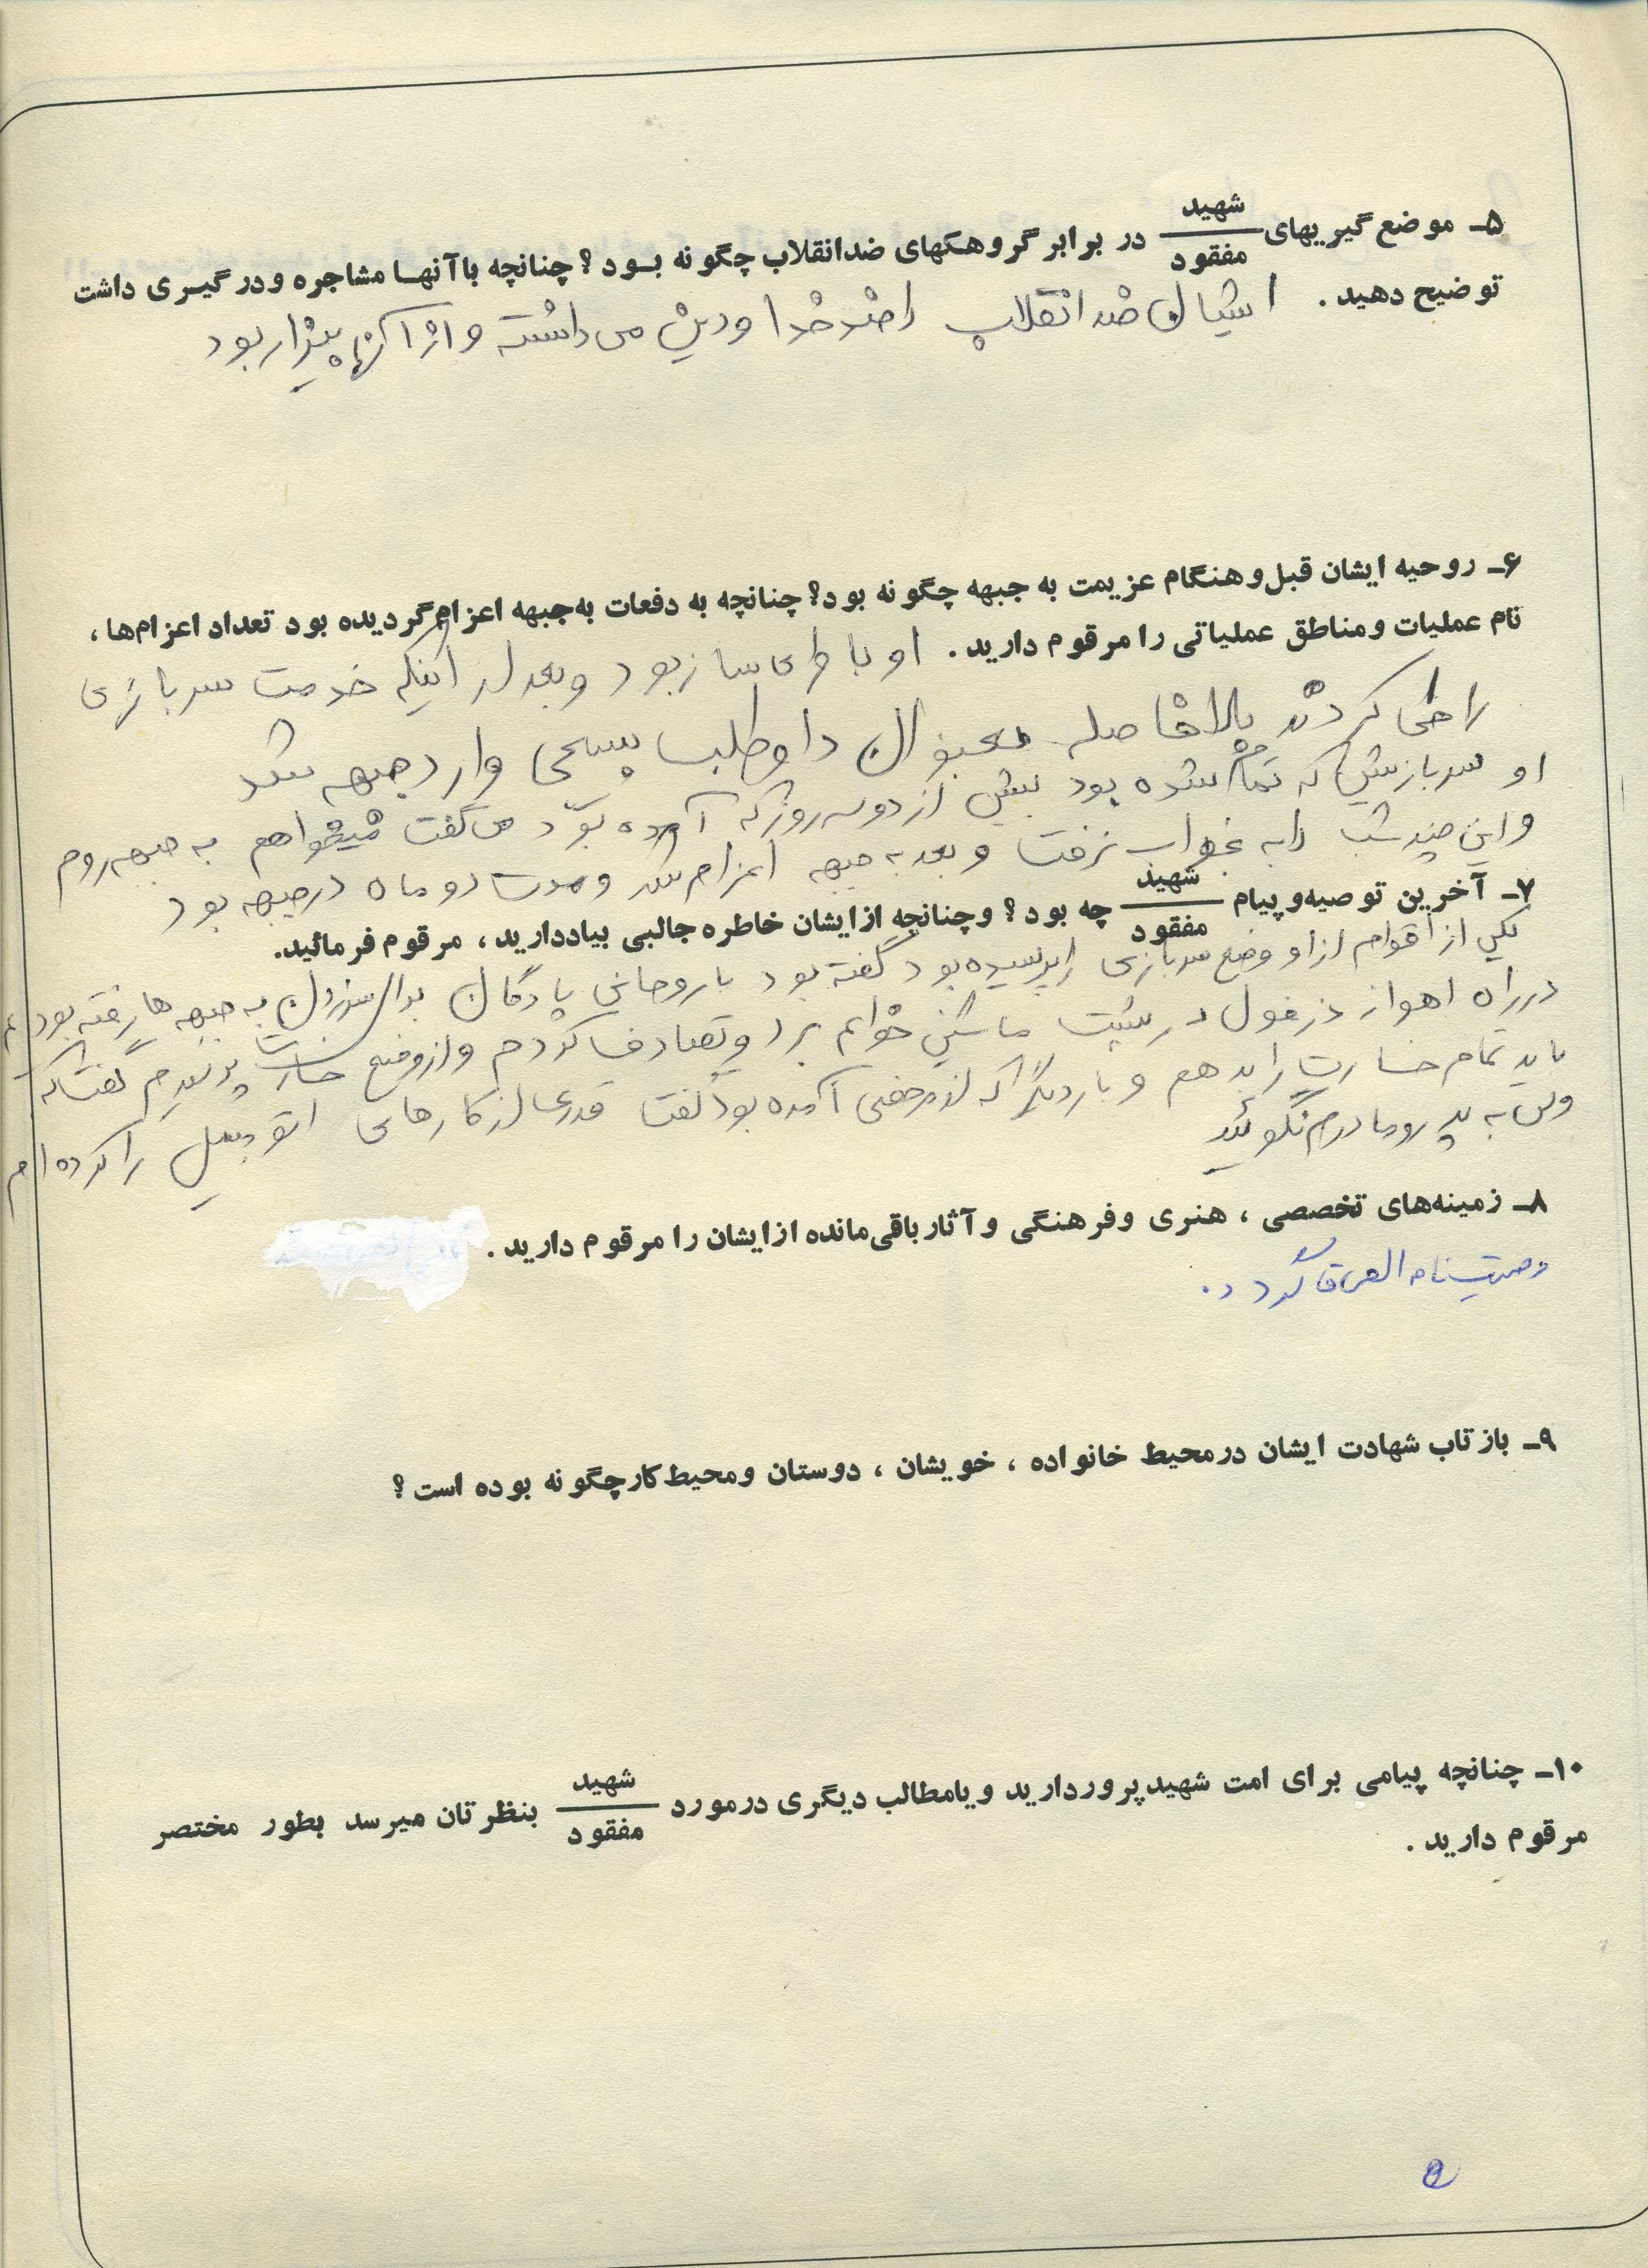 ۵ـ موضع گیریهای شهید / مفقود در برابر گروهکهای ضدانقلاب چگونه بود؟ چنانچه باآنها مشاجره ودرگیری داشت
توضیح دهید. ایشان ضد انقلاب را ضد خدا و دین می داشته و از آنها بیزار بود
۶ـ روحیه ایشان قبل وهنگام عزیمت به جبهه چگونه بود؟ چنانچه به دفعات به جبهه اعزام گردیده بود تعداد اعزام‌ها،
نام عملیات ومناطق عملیاتی را مرقوم دارید. او با وای ساز بود و بعد از اینکه خدمت سربازی
را طی کردند بلافاصله بعنوان داوطلب بسیجی وارد جبهه شد
او سربازیش که تمام شده بود بیش از دوسه روز که آمده بود می گفت میخواهم به جبهه روم
و این چند شب را به خواب نرفت و بعد به جبهه اعزام شد و مدت دو ماه در جبهه بود
۷ـ آخرین توصیه‌وپیام شهید / مفقود چه بود؟ وچنانچه ازایشان خاطره جالبی بیاددارید، مرقوم فرمائید.
یکی از اقوام از او وضع سربازی را پرسیده بود گفته بود با روحانی پادگان به جبهه ها رفته بودیم
در راه اهواز دزفول در پشت ماشین خوابم برد و تصادف کردم و از وضع خسارت پرسیدم گفتند که
باید تمام خسارت را بدهم و بار دیگر که از مرخصی آمده بود گفت قدری از کارهای اتومبیل را کرده ام
ولی به پدر و مادرم نگوئید
۸ـ زمینه‌های تخصصی، هنری وفرهنگی وآثارباقی‌مانده ازایشان را مرقوم دارید.
وصیت‌نامه الصاق گردد.
۹ـ بازتاب شهادت ایشان درمحیط خانواده، خویشان، دوستان ومحیط کارچگونه بوده است؟
۱۰ـ چنانچه پیامی برای امت شهیدپروردارید ویامطالب دیگری درمورد شهید / مفقود بنظرتان میرسد بطور مختصر
مرقوم دارید.
۵